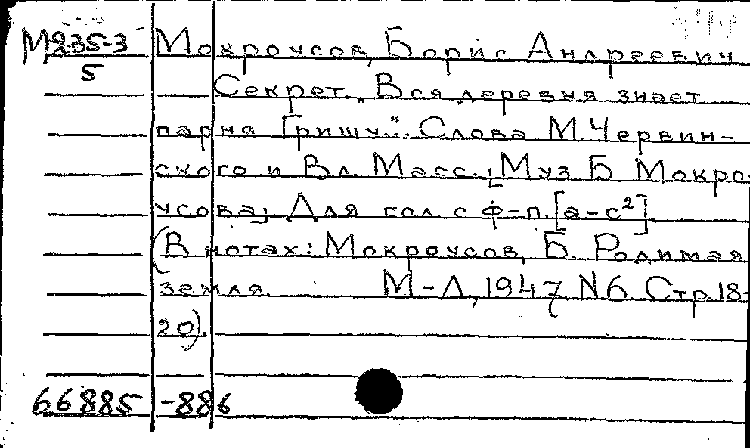 М235-3 Мокроусов, Борис Андреевич
5
Секрет. „Вся деревня знает
парня Гришу". Слова М. Червин-
ского и Вл. Масс. [Муз Б Мокро-
усова] Для гол. с ф-п. [а-с²]
(В нотах: Мокроусов, Б. Родимая
земля. М-Л, 1947 N6. Стр. 18-
20).
66885 -886